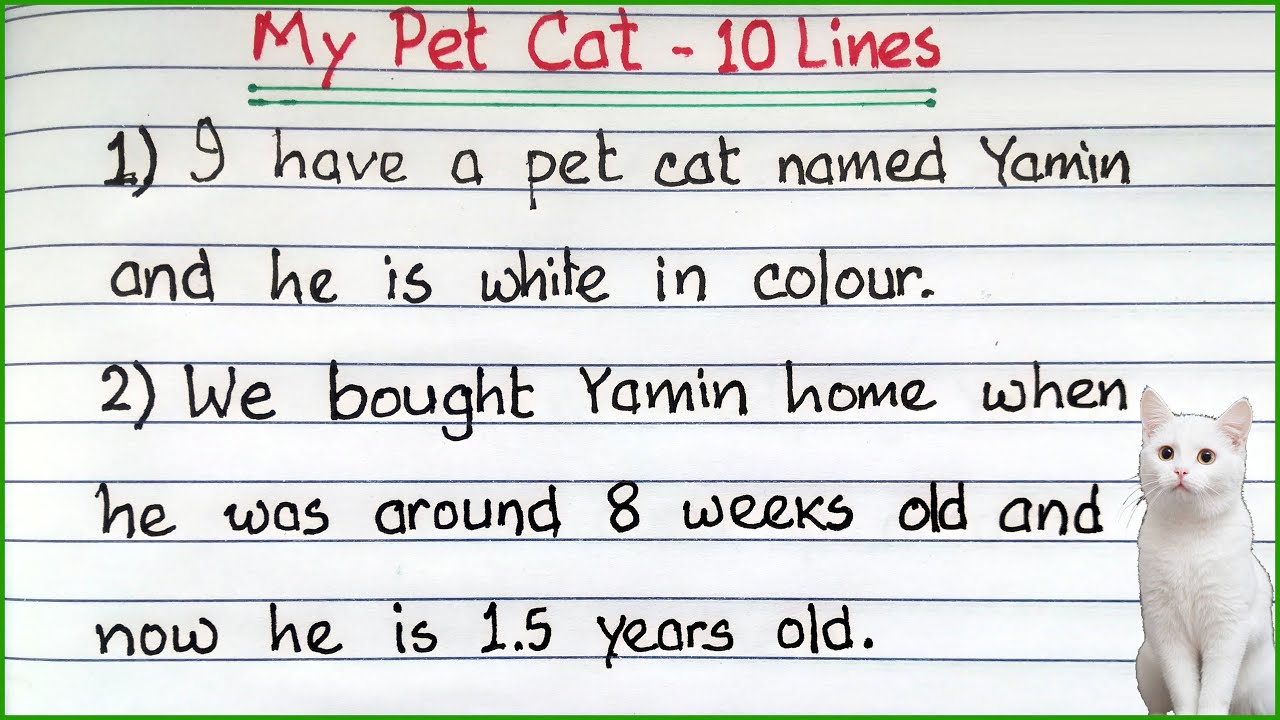 My Pet Cat - 10 Lines
1) I have a pet cat named Yamin
and he is white in colour.
2) We bought Yamin home when
he was around 8 weeks old and
now he is 1.5 years old.